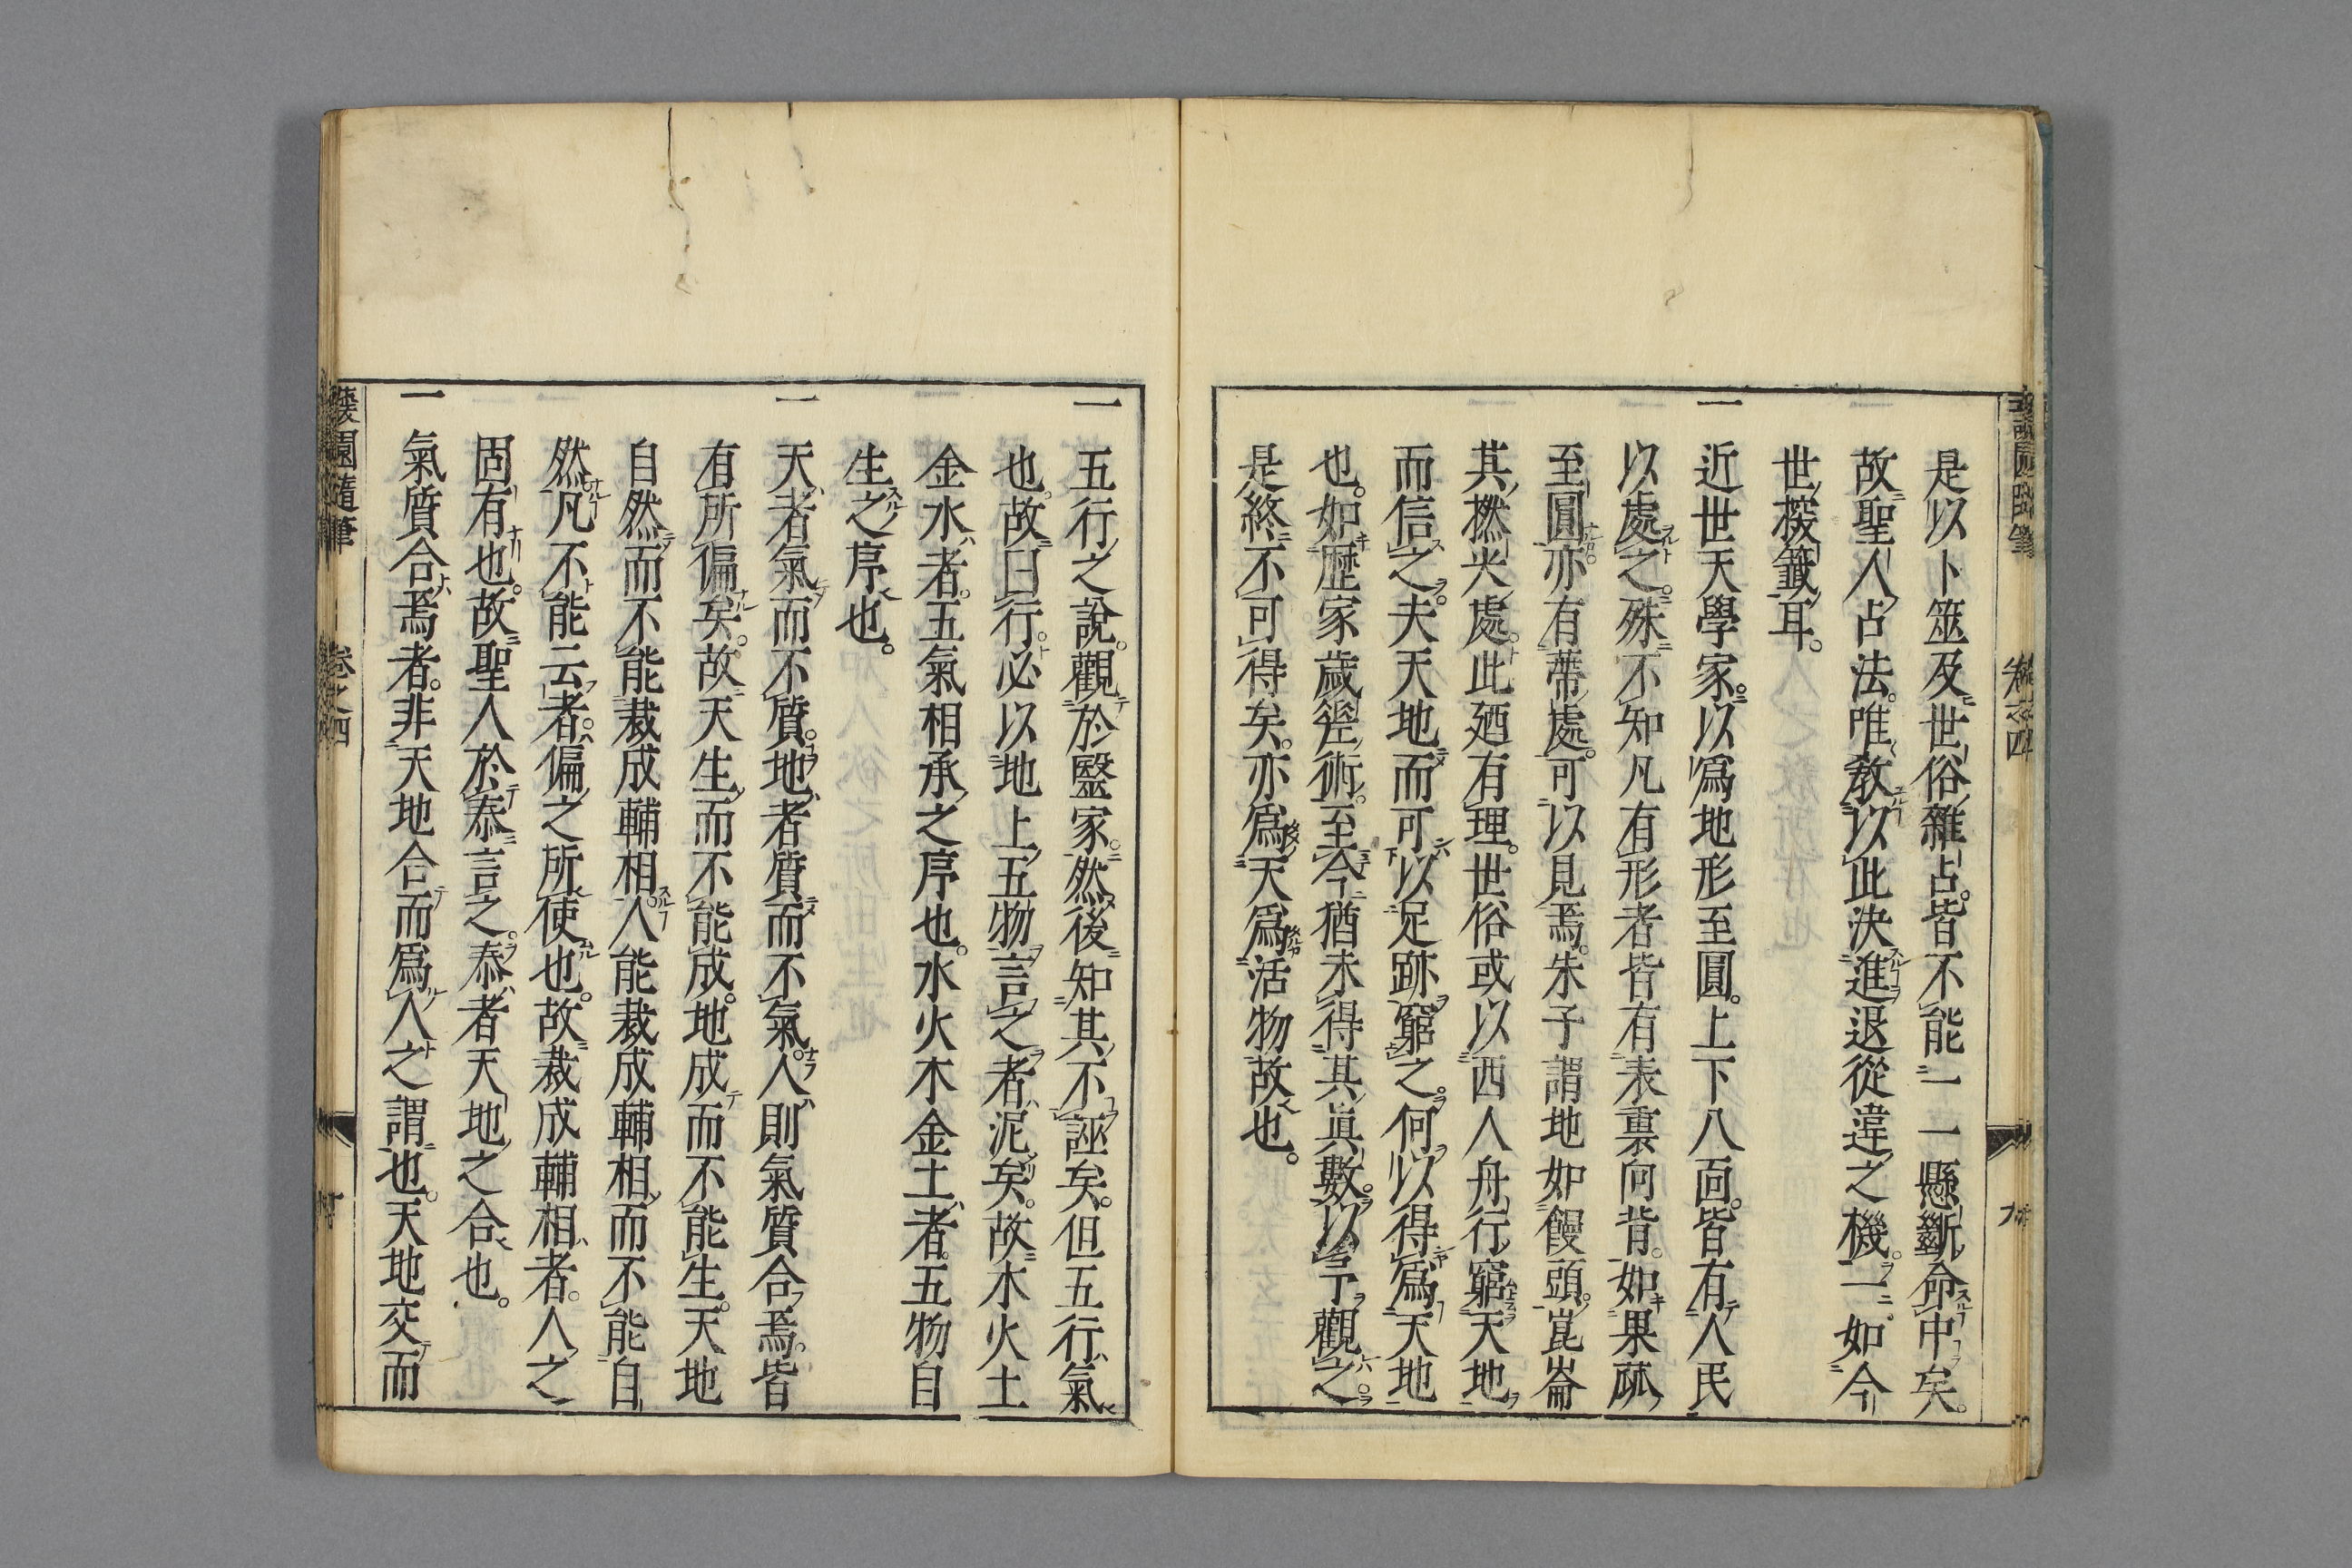 是以卜筮及世俗雜占。皆不能一一懸斷命中矣。
故聖人占法。唯教以此決進退從違之機。一如今
世探籤耳。
一近世天學家。以爲地形至圓。上下八面。皆有人民
以處之。殊不知凡有形者皆有表裏向背。如果蓏
至圓亦有蔕處。可以見焉。朱子謂地如饅頭。崑崙
其撚尖處。此廼有理。世俗或以西人舟行窮天地
而信之。夫天地而可以足跡窮之。何以得爲天地
也。如歷家歲筳術。至今猶未得其眞數。以予觀之。
是終不可得矣。亦爲天爲活物故也。
一五行之說。觀於毉家。然後知其不誣矣。但五行氣
也。故曰行。必以地上五物言之者泥矣。故水火土
金水者。五氣相承之序也。水火木金土者。五物自
生之序也。
一天者氣而不質。地者質而不氣。人則氣質合焉。皆
有所偏矣。故天生而不能成。地成而不能生。天地
自然而不能裁成輔相。人能裁成輔相而不能自
然。凡不能云者。偏之所使也。故裁成輔相者。人之
固有也。故聖人於泰言之。泰者天地之合也。
一氣質合焉者。非天地合而爲人之謂也。天地交而
園隨筆 卷之四